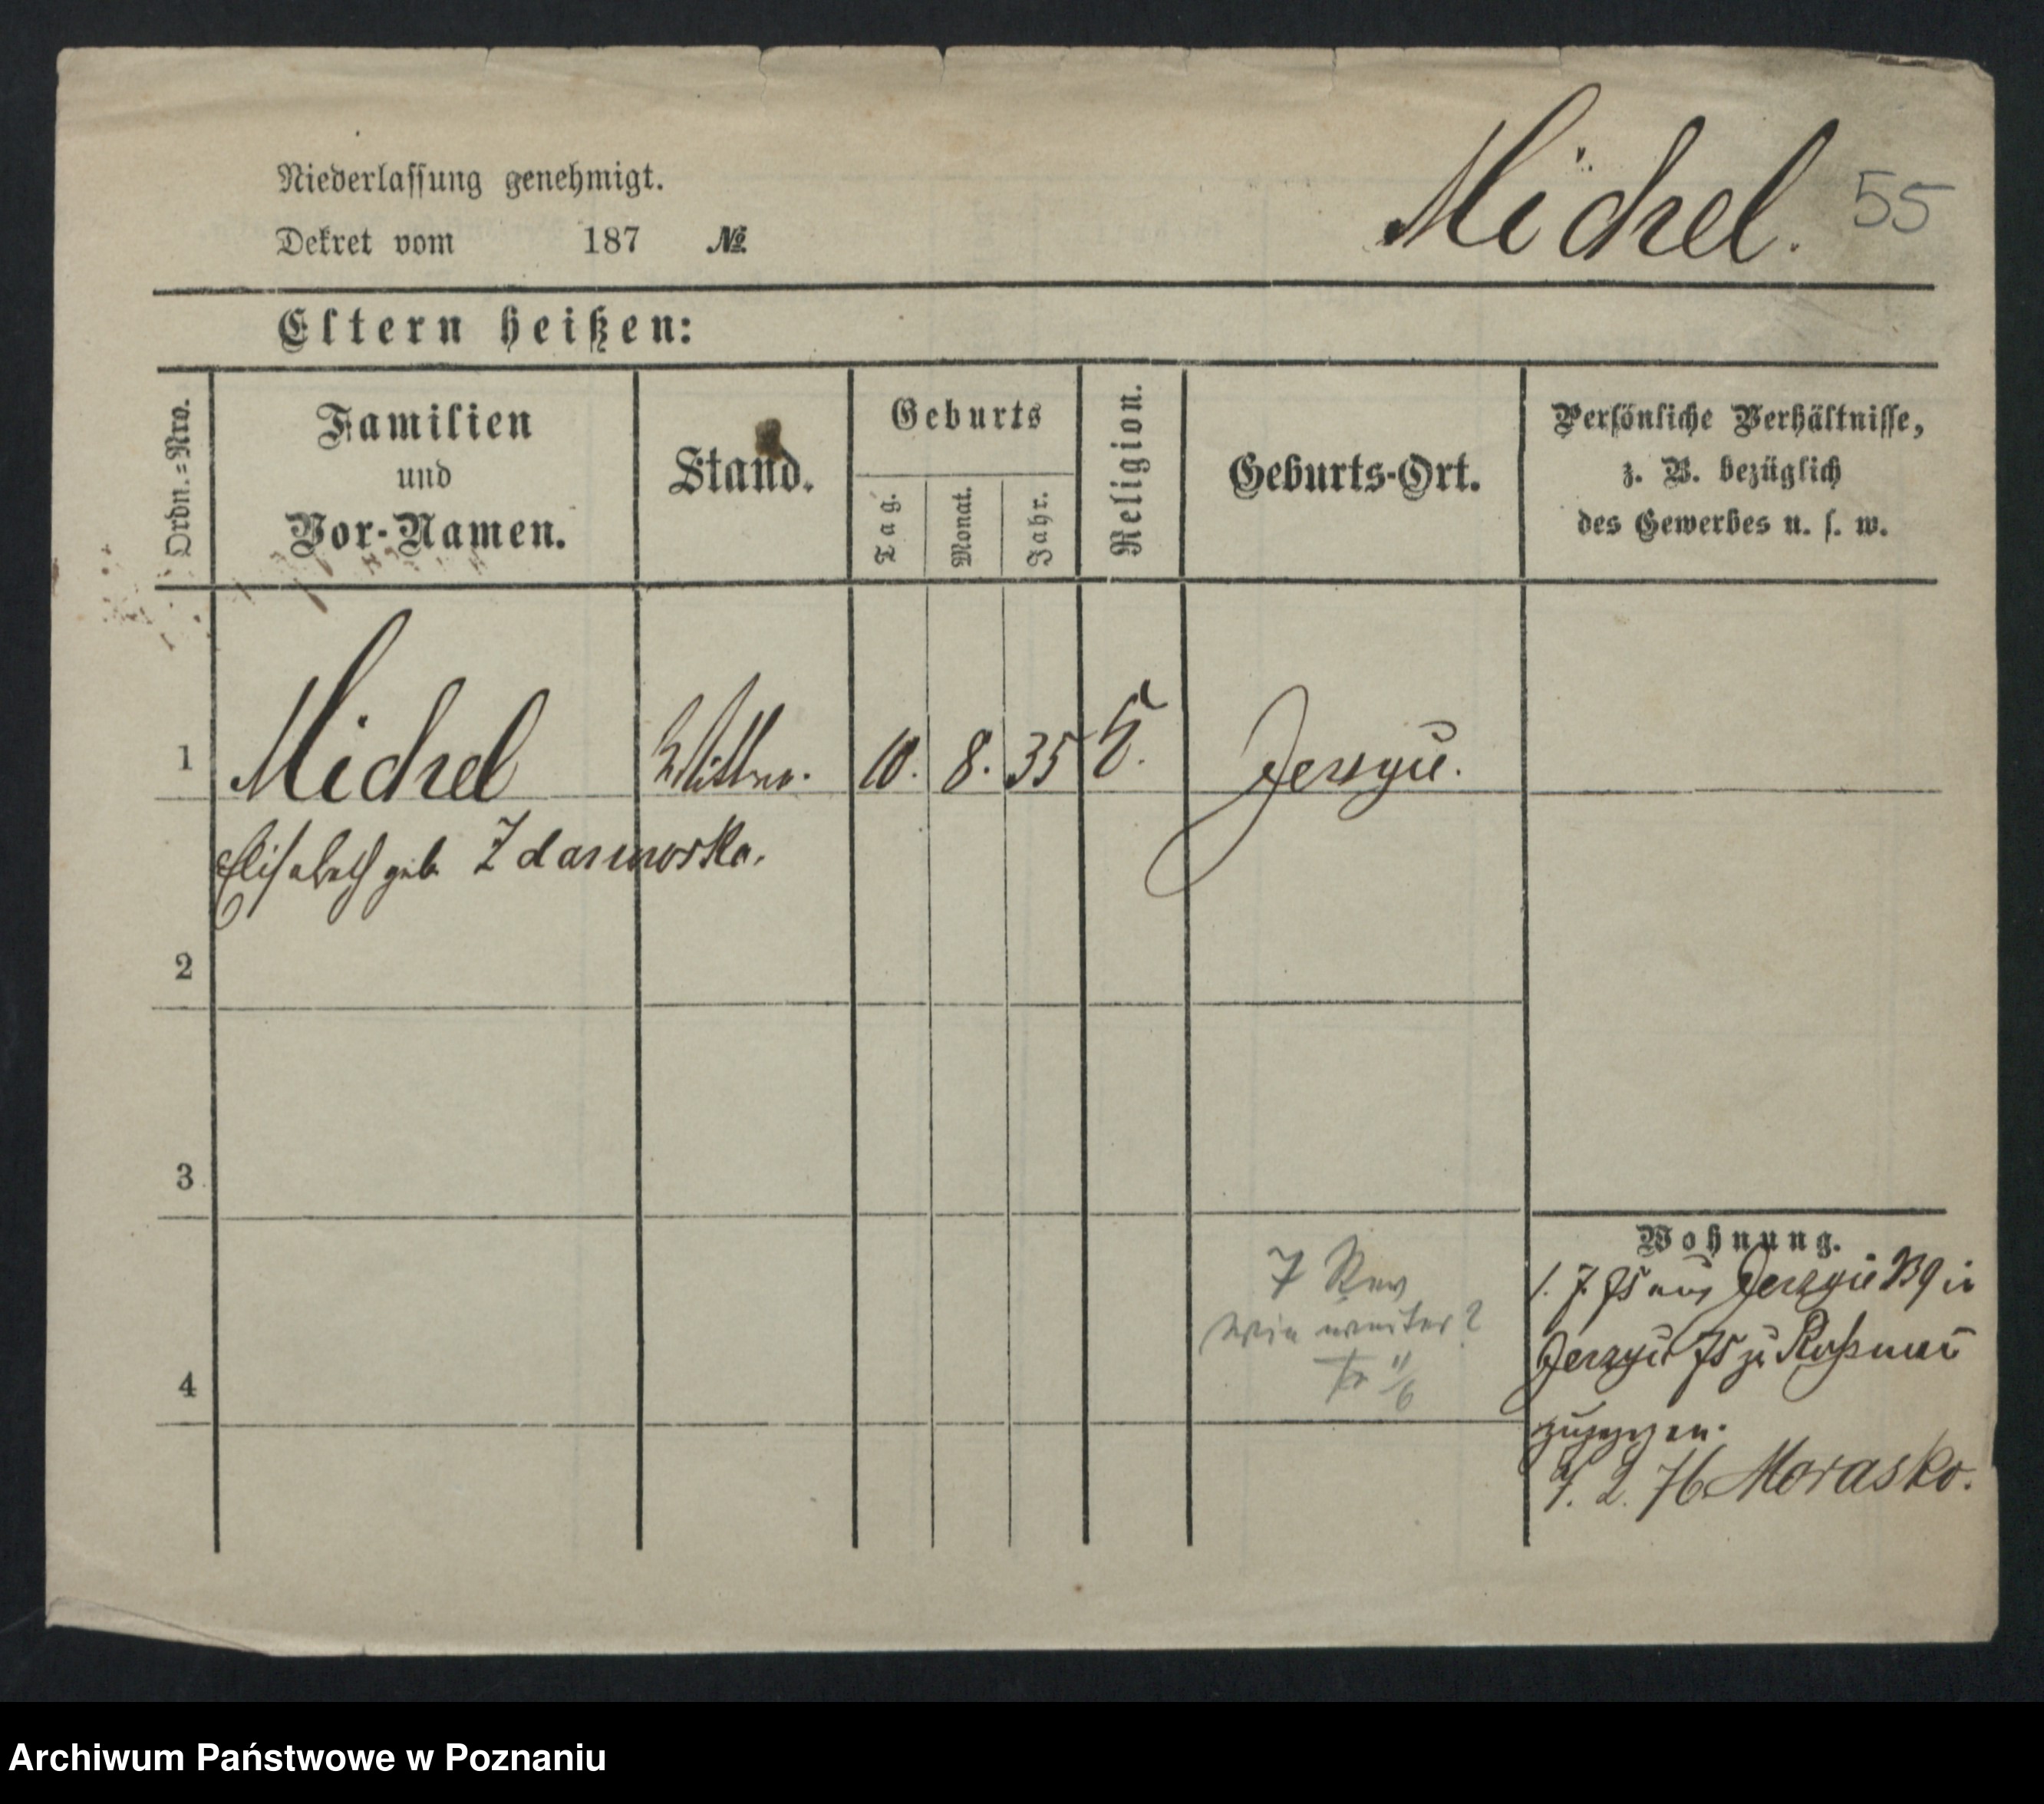 Niederlassung genehmigt.
Dekret vom 187 №
Michel. 55
Eltern heißen:
Ordn.-Nro.
Familien
und
Vor-Namen.
Stand.
Geburts
Tag.
Monat.
Jahr.
Religion.
Geburts-Ort.
Persönliche Verhältnisse,
z. B. bezüglich
des Gewerbes u. s. w.
1 Michel 10. 8. 35
Elisabeth geb.
2
3
4
wie weiter?
11/6
Wohnung.
1. 7. 75 aus
75 zu
zugezogen.
2. 76 Morasko.
Archiwum Państwowe w Poznaniu